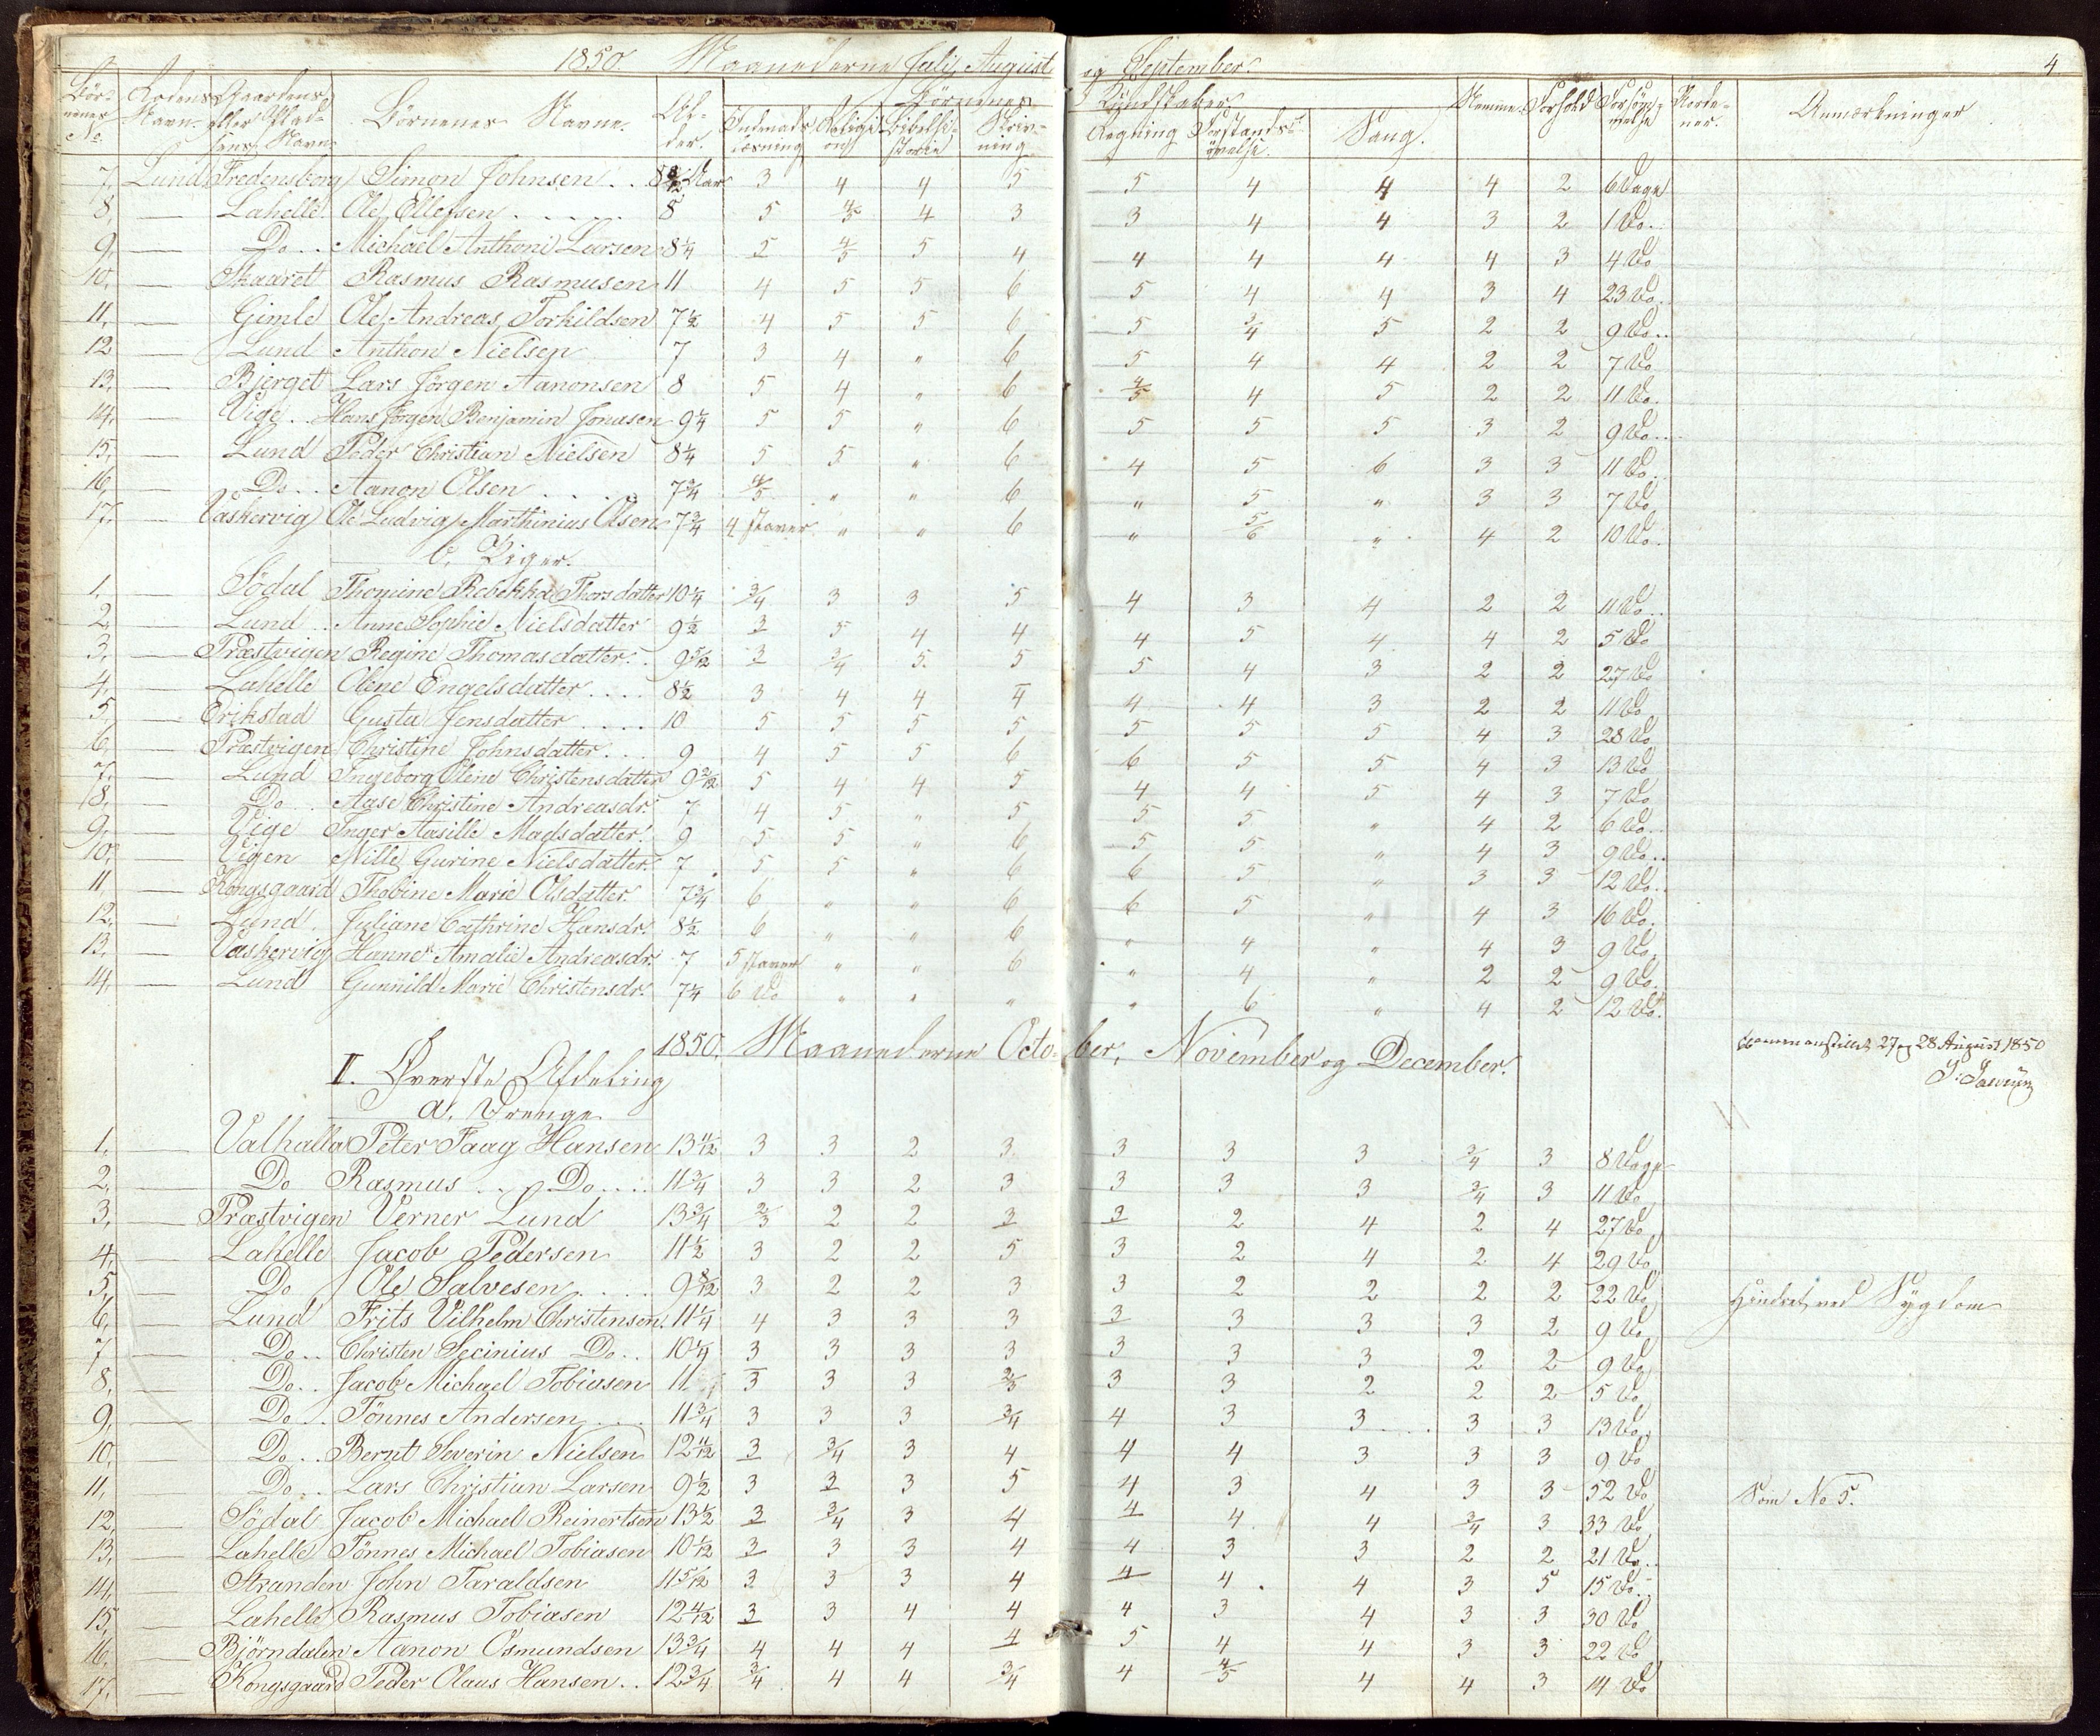 1850. Maanederne Juli, August og September. 4
Børnenes No Rodens Navn. Gaardens eller Pladsens Navn Børnenes Navne. Alder. Børnenes Kundskaber Nemme Forhold Forsømmelse Anmærkninger
Indenadslæsning Religion Bibelhistorie Skrivning Regning Forstandsøvelse. Sang.
7, Lund Fredensborg Simon Johnsen . . 3 4 4 5 5 4 4 4 2 6 Dage
8, — Lahelle Ole Ellefsen . . . . 8 5 4/5 4 3 3 4 4 3 2 1 Do
9, — Do . . Michael Anthoni Larsen 8 1/4 5 4/5 5 4 4 4 4 4 3 4 Do
10, — Skaaret Rasmus Rasmusen 11 4 5 5 6 5 4 4 3 4 23 Do.
11, — Gimle Ole Andreas Torkildsen 7 1/2 4 5 5 6 5 3/4 5 2 2 9 Do . .
12 — Lund Anthon Nielsen 7 3 4 " 6 5 4 4 2 2 7 Do
13, — Bjerget Lars Jörgen Aanonsen 8 5 4 " 6 4/5 4 5 2 2 11 Do.
14, — Vige . . Hans Jörgen Benjamin Jonasen 9 1/4 5 5 " 6 5 5 5 3 2 9 Do . .
15, — Lund Peder Christian Nielsen 8 1/4 5 5 " 6 4 5 6 3 3 11 Do
16, — Do . . Aanon Olsen . . . . 7 3/4 4/5 " " 6 " 5 " 3 3 7 Do
17, — Vaskervig Ole Ludvig Marthinius Olsen 7 3/4 4 staver " " 6 " 5/6 " 4 2 10 Do.
b. Piger.
1, Södal Thomine Rebekka Thorsdatter 10 1/4 3/4 3 3 5 4 3 4 2 2 11 Do . .
2, — Lund . . Anne Sophie Nielsdatter 9 1/2 3 5 4 4 4 5 4 4 2 5 Do
3, — Præstvigen Regine Thomasdatter . . 9 5/12 3 3/4 5 5 5 4 3 2 2 27 Do
4, — Lahelle Olene Engelsdatter . . . . 8 1/2 3 4 4 4 4 4 3 2 2 11 Do
5, — Erikstad Gusta Jensdatter . . . . 10 5 5 5 5 5 5 5 4 3 28 Do
6, — Præstvigen Christine Johnsdatter . . 9 4 5 5 6 6 5 5 4 3 13 Do
7, — Lund Ingeborg Olene Christensdatter 9 2/12 5 4 4 5 4 4 5 4 3 7 Do
8, — Do . . Aase Christine Andreasdr. 7 4 5 " 5 5 5 " 4 2 6 Do . .
9, — Vige Inger Aasille Madsdatter. 9 5 5 " 6 5 5 " 4 3 9 Do . .
10, — Vigen Nille Gurine Nielsdatter. 7 5 5 " 6 6 5 " 3 3 12 Do . .
11 — Kongsgaard Thobine Marie Olsdatter 7 3/4 6 " " 6 6 5 " 4 3 16 Do.
12, — Lund . Juliane Cathrine Hansdr. 8 1/2 6 " " 6 " 4 " 4 3 9 Do.
13, — Vaskervig Hanne Amalie Andreasdr. 7 5 staver " " 6 " 4 " 2 2 9 Do.
14, — Lund Gunnild Marie Christensdr. 7 1/4 6 Do " " " " 6 " 4 2 12 Do.
27 og 28 August 1850
1850. Maanederne October, November og December.
II. Øverste Afdeling
a. Drenge.
1, — Valhalla Peter Faag Hansen 13 4/12 3 3 2 3 3 3 3 3/4 3 8 Dage
2, — Do Rasmus . . Do . . 11 3/4 3 3 2 3 3 3 3 3/4 3 11 Do
3, — Præstvigen Verner Lund 13 3/4 2/3 2 2 3 3 2 4 2 4 27 Do
4, — Lahelle Jacob Pedersen 11 1/2 3 2 2 5 3 2 4 2 4 29 Do
5, — Do Ole Salvesen . . . . 9 8/12 3 2 2 3 3 2 2 2 2 22 Do Hindret ved Sygdom
6, — Lund Frits Vilhelm Christensen. 11 1/4 4 3 3 3 3 3 3 3 2 9 Do
7 — Do . . Christen Secinius Do . . 10 1/4 3 3 3 3 3 3 3 2 2 9 Do
8, — Do . . Jacob Michael Tobiasen 11 3 3 3 2/3 3 3 2 2 2 5 Do
9, — Do . . Tönnes Andersen . . . 11 3/4 3 3 3 3/4 4 3 3 3 3 13 Do
10, — Do . . Bernt Severin Nielsen 12 4/12 3 3/4 3 4 4 4 3 3 3 9 Do
11, — Do . . Lars Christian Larsen 9 1/2 3 3 3 5 4 3 4 3 3 52 Do Som No 5.
12, — Södal Jacob Michael Reinertsen 13 1/2 3 3/4 3 4 4 4 4 3/4 3 33 Do
13, — Lahelle Tönnes Michael Tobiasen 10 1/12 3 3 3 4 4 3 3 2 2 21 Do . .
14, — Stranden John Taraldsen 11 5/12 3 3 3 4 4 4 4 3 5 15 Do . .
15, — Lahelle Rasmus Tobiasen 12 4/12 3 3 4 4 4 3 4 3 3 30 Do
16, — Björndalen Aanon Osmundsen 13 3/4 4 4 4 4 5 4 4 3 3 22 Do
17, — Kongsgaard Peder Olaus Hansen . . 12 3/4 3/4 4 4 3/4 4 4/5 4 4 3 14 Do